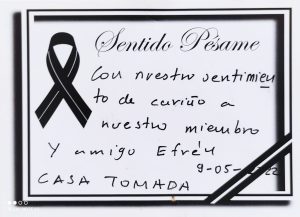 Sentido Pésame
Con nuestro sentimien
to de cariño a
nuestro miembro
Y amigo Efrén
9-05-2022
CASA TOMADA